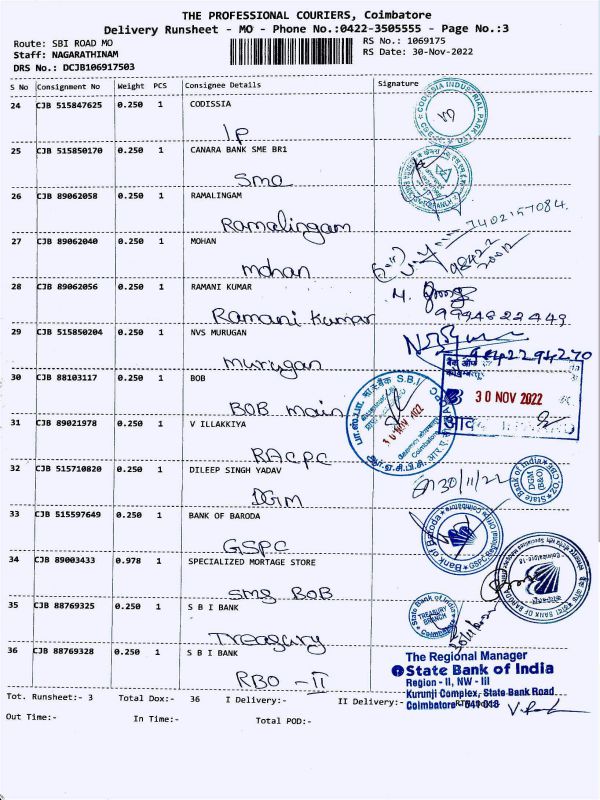 THE PROFESSIONAL COURIERS, Coimbatore
Delivery Runsheet - MO - Phone No.:0422-3505555 - Page No.:3
Route: SBI ROAD MO
RS No.: 1069175
Staff: NAGARATHINAM
RS Date: 30-Nov-2022
DRS No.: DCJB106917503
S No Consignment No Weight PCS Consignee Details Signature
24 CJB 515847625 0.250 1 CODISSIA
IP
25 CJB 515850170 0.250 1 CANARA BANK SME BR1
SME
26 CJB 89062058 0.250 1 RAMALINGAM
Ramalingam 7402157084.
27 CJB 89062040 0.250 1 MOHAN
mohan
28 CJB 89062056 0.250 1 RAMANI KUMAR
Ramani kumar 9994822449
29 CJB 515850204 0.250 1 NVS MURUGAN
murugan 9842294270
30 CJB 88103117 0.250 1 BOB
30 NOV 2022
BOB main
31 CJB 89021978 0.250 1 V ILLAKKIYA
RACPC
32 CJB 515710820 0.250 1 DILEEP SINGH YADAV
DGM 30/11/22
State Bank of India
DGM (B&O)
33 CJB 515597649 0.250 1 BANK OF BARODA
GSPC
Bank of Baroda
34 CJB 89003433 0.978 1 SPECIALIZED MORTAGE STORE
SMS BOB
35 CJB 88769325 0.250 1 S B I BANK
Treasury
State Bank of India
TREASURY BRANCH
Coimbatore
36 CJB 88769328 0.250 1 S B I BANK
RBO - II
The Regional Manager
State Bank of India
Region - II, NW - III
Kurunji Complex, State Bank Road
Coimbatore - 641 018
Tot. Runsheet:- 3 Total Dox:- 36 I Delivery:- II Delivery:-
Out Time:- In Time:- Total POD:-